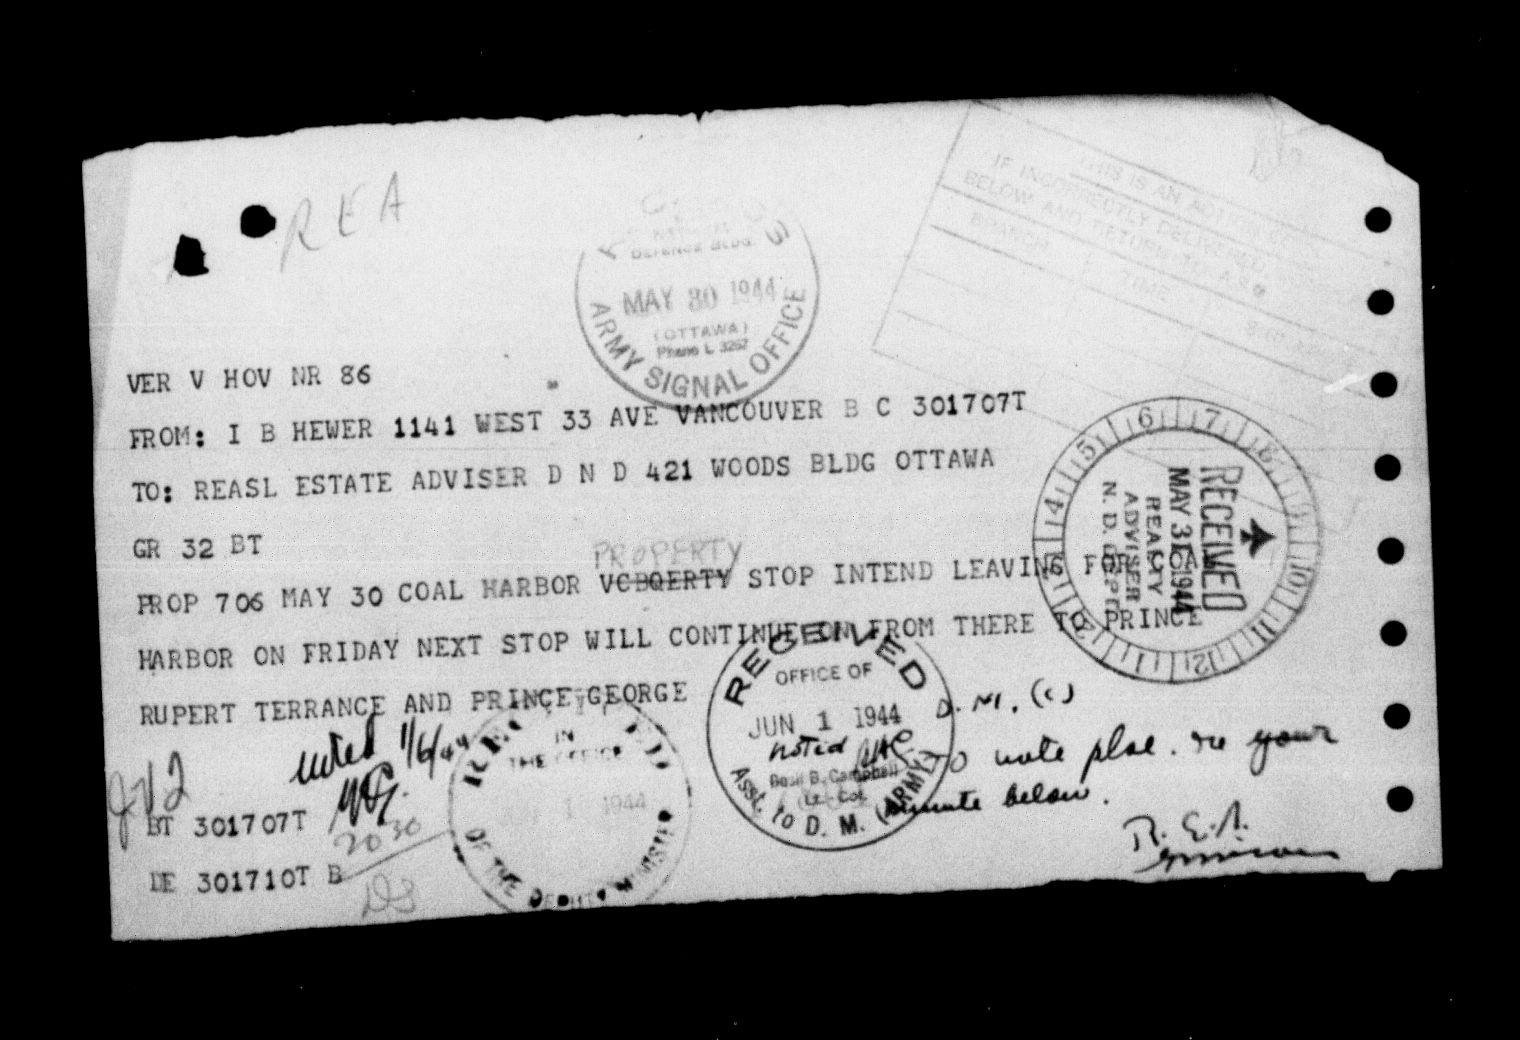 REA
NATIONAL
DEFENCE BLDG.
MAY 30 1944
(OTTAWA)
Phone L 3267
ARMY SIGNAL OFFICE
THIS IS AN
IF INCORRECTLY DELIVERED,
BELOW AND RETURN TO A.S.O
BRANCH TIME
VER V HOV NR 86
FROM: I B HEWER 1141 WEST 33 AVE VANCOUVER B C 301707T
TO: REASL ESTATE ADVISER D N D 421 WOODS BLDG OTTAWA
GR 32 BT
PROPERTY
PROP 706 MAY 30 COAL HARBOR VCBQERTY STOP INTEND LEAVING FOR COAL
HARBOR ON FRIDAY NEXT STOP WILL CONTINUE ON FROM THERE TO PRINCE
RUPERT TERRANCE AND PRINCE GEORGE
6 7 8 9 10 11 12 1 2 3 4 5
RECEIVED
MAY 31 1944
REALTY
ADVISER
N. D. DEPT.
RECEIVED
OFFICE OF
JUN 1 1944
noted
Basil B. Campbell
Lt. Col.
Asst. to D. M. (ARMY)
D. M. (C)
To note plse. re your
minute below.
R. E. A.
noted 1/6/44
RECEIVED
IN
THE OFFICE
1944
OF THE DEPUTY MINISTER
BT 301707T
2030
DE 301710T B